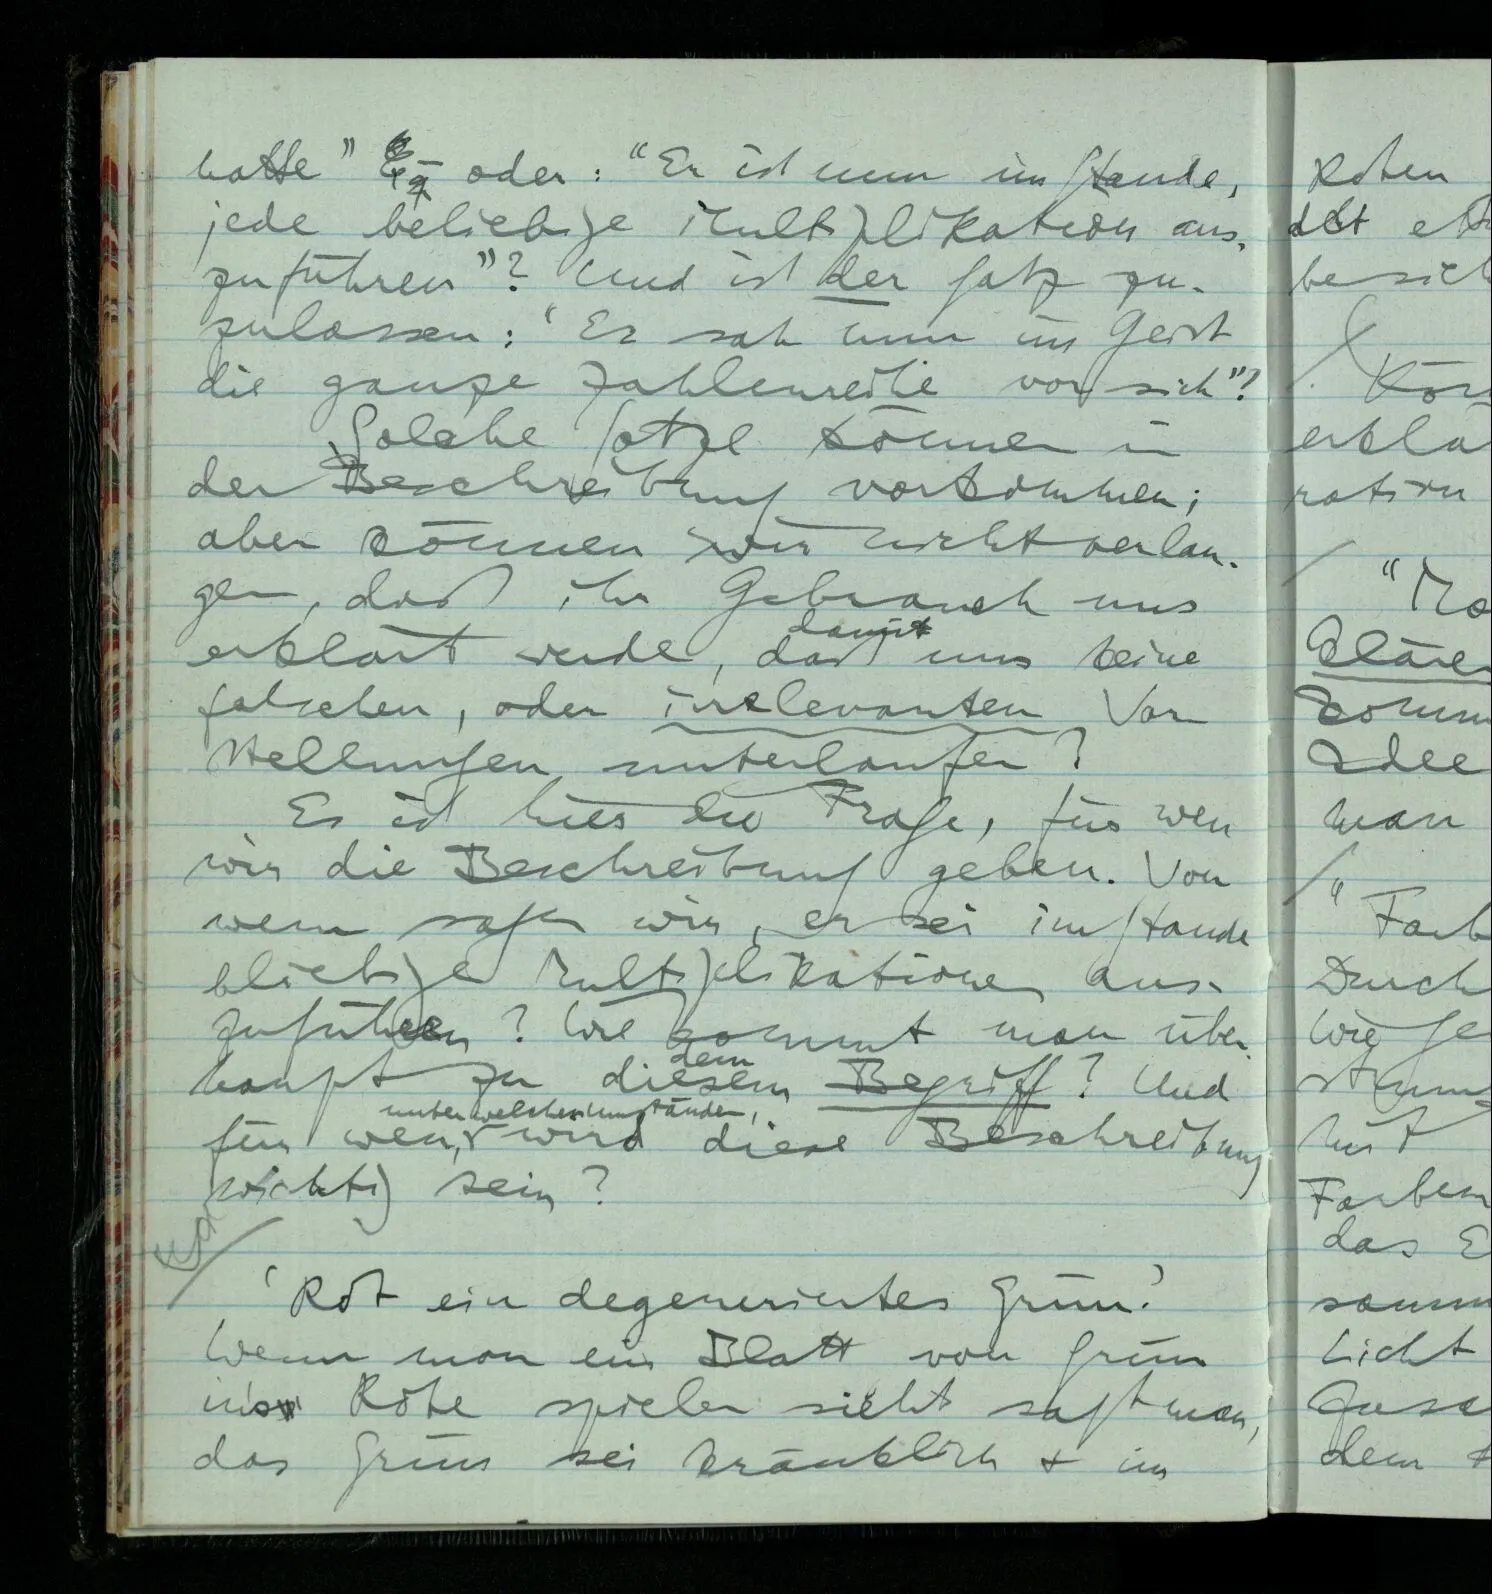 hatte" oder: "Er ist nun im Stande,
jede beliebige Multiplikation aus-
zuführen"? Und ist der Satz zu-
zulassen: "Er sah nun im Geist
die ganze Zahlenreihe vor sich"?
Solche Sätze können in
der Beschreibung vorkommen;
aber können wir nicht verlan-
gen, daß ihr Gebrauch uns
damit
erklärt werde, daß uns keine
falschen, oder irrelevanten Vor
stellungen unterlaufen?
Es ist hier die Frage, für wen
wir die Beschreibung geben. Von
wem sagen wir, er sei im Stande
bliebige Multiplikationen aus-
zuführen? Wie kommt man über-
dem
haupt zu diesem Begriff? Und
unter welchen Umständen,
für wen, wird diese Beschreibung
wichtig sein?
'Rot ein degeneriertes Grün.'
Wenn man ein Blatt von Grün
ins Rote spielen sieht sagt man,
das Grün sei kränklich & im
Roten
besich
erklä
ration
"Mo
man
"Farb
Durch
mit
Farben
das E
Licht
dem